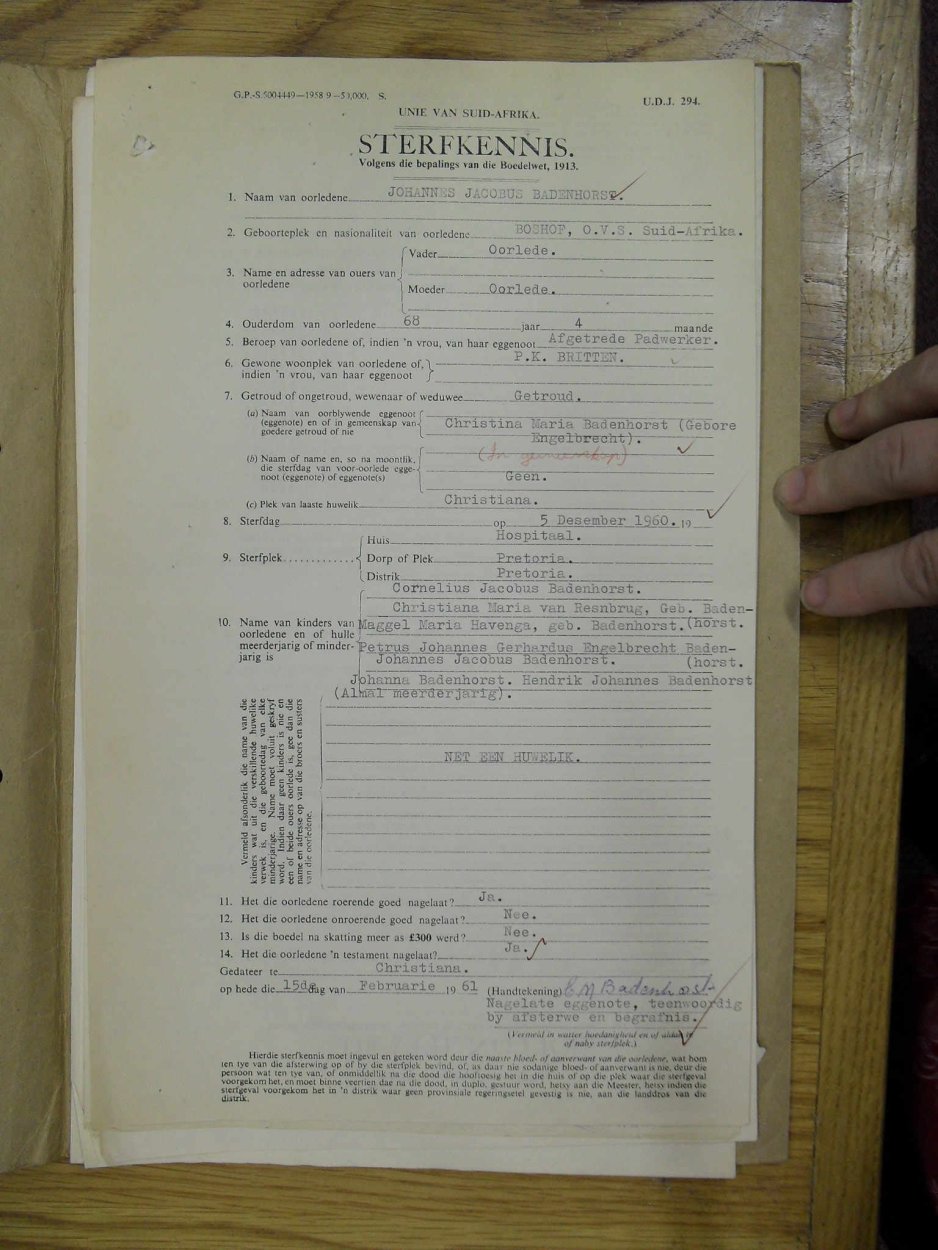 G.P.-S.5004449—1958 9—50,000. S.
U.D.J. 294.
UNIE VAN SUID-AFRIKA.
STERFKENNIS.
Volgens die bepalings van die Boedelwet, 1913.
1. Naam van oorledene JOHANNES JACOBUS BADENHORST.
2. Geboorteplek en nasionaliteit van oorledene BOSHOF, O.V.S. Suid-Afrika.
3. Name en adresse van ouers van oorledene
Vader Oorlede.
Moeder Oorlede.
4. Ouderdom van oorledene 68 jaar 4 maande
5. Beroep van oorledene of, indien 'n vrou, van haar eggenoot Afgetrede Padwerker.
6. Gewone woonplek van oorledene of, P.K. BRITTEN.
indien 'n vrou, van haar eggenoot
7. Getroud of ongetroud, wewenaar of weduwee Getroud.
(a) Naam van oorblywende eggenoot
(eggenote) en of in gemeenskap van Christina Maria Badenhorst (Gebore
goedere getroud of nie Engelbrecht).
(In gemeenskap)
(b) Naam of name en, so na moontlik,
die sterfdag van voor-oorlede egge-
noot (eggenote) of eggenote(s) Geen.
(c) Plek van laaste huwelik Christiana.
8. Sterfdag op 5 Desember 1960. 19
9. Sterfplek
Huis Hospitaal.
Dorp of Plek Pretoria.
Distrik Pretoria.
Cornelius Jacobus Badenhorst.
Christiana Maria van Resnbrug, Geb. Baden-
10. Name van kinders van Maggel Maria Havenga, geb. Badenhorst. (horst.
oorledene en of hulle
meerderjarig of minder- Petrus Johannes Gerhardus Engelbrecht Baden-
jarig is Johannes Jacobus Badenhorst. (horst.
Johanna Badenhorst. Hendrik Johannes Badenhorst
(Almal meerderjarig).
Vermeld afsonderlik die name van die
kinders wat uit die verskillende huwelike
verwek is, en die geboortedag van elke
minderjarige. Name moet voluit geskryf
word. Indien daar geen kinders is nie en
een of beide ouers oorlede is, gee dan die
name en adresse op van die broers en susters
van die oorledene.
NET EEN HUWELIK.
11. Het die oorledene roerende goed nagelaat? Ja.
12. Het die oorledene onroerende goed nagelaat? Nee.
13. Is die boedel na skatting meer as £300 werd? Nee.
14. Het die oorledene 'n testament nagelaat? Ja.
Gedateer te Christiana.
op hede die 15de dag van Februarie 19 61 (Handtekening) C M Badenhorst
Nagelate eggenote, teenwoordig
by afsterwe en begrafnis.
(Vermeld in watter hoedanigheid en of aldan in
of naby sterfplek.)
Hierdie sterfkennis moet ingevul en geteken word deur die naaste bloed- of aanverwant van die oorledene, wat hom
ten tye van die afsterwing op of by die sterfplek bevind, of, as daar nie sodanige bloed- of aanverwant is nie, deur die
persoon wat ten tye van, of onmiddellik na die dood die hooftoesig het in die huis of op die plek waar die sterfgeval
voorgekom het, en moet binne veertien dae na die dood, in duplo, gestuur word, hetsy aan die Meester, hetsy indien die
sterfgeval voorgekom het in 'n distrik waar geen provinsiale regeringsetel gevestig is nie, aan die landdros van die
distrik.